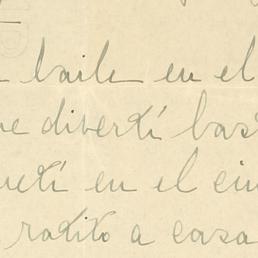 baile en el
divertí bas
en el cin
ratito a casa